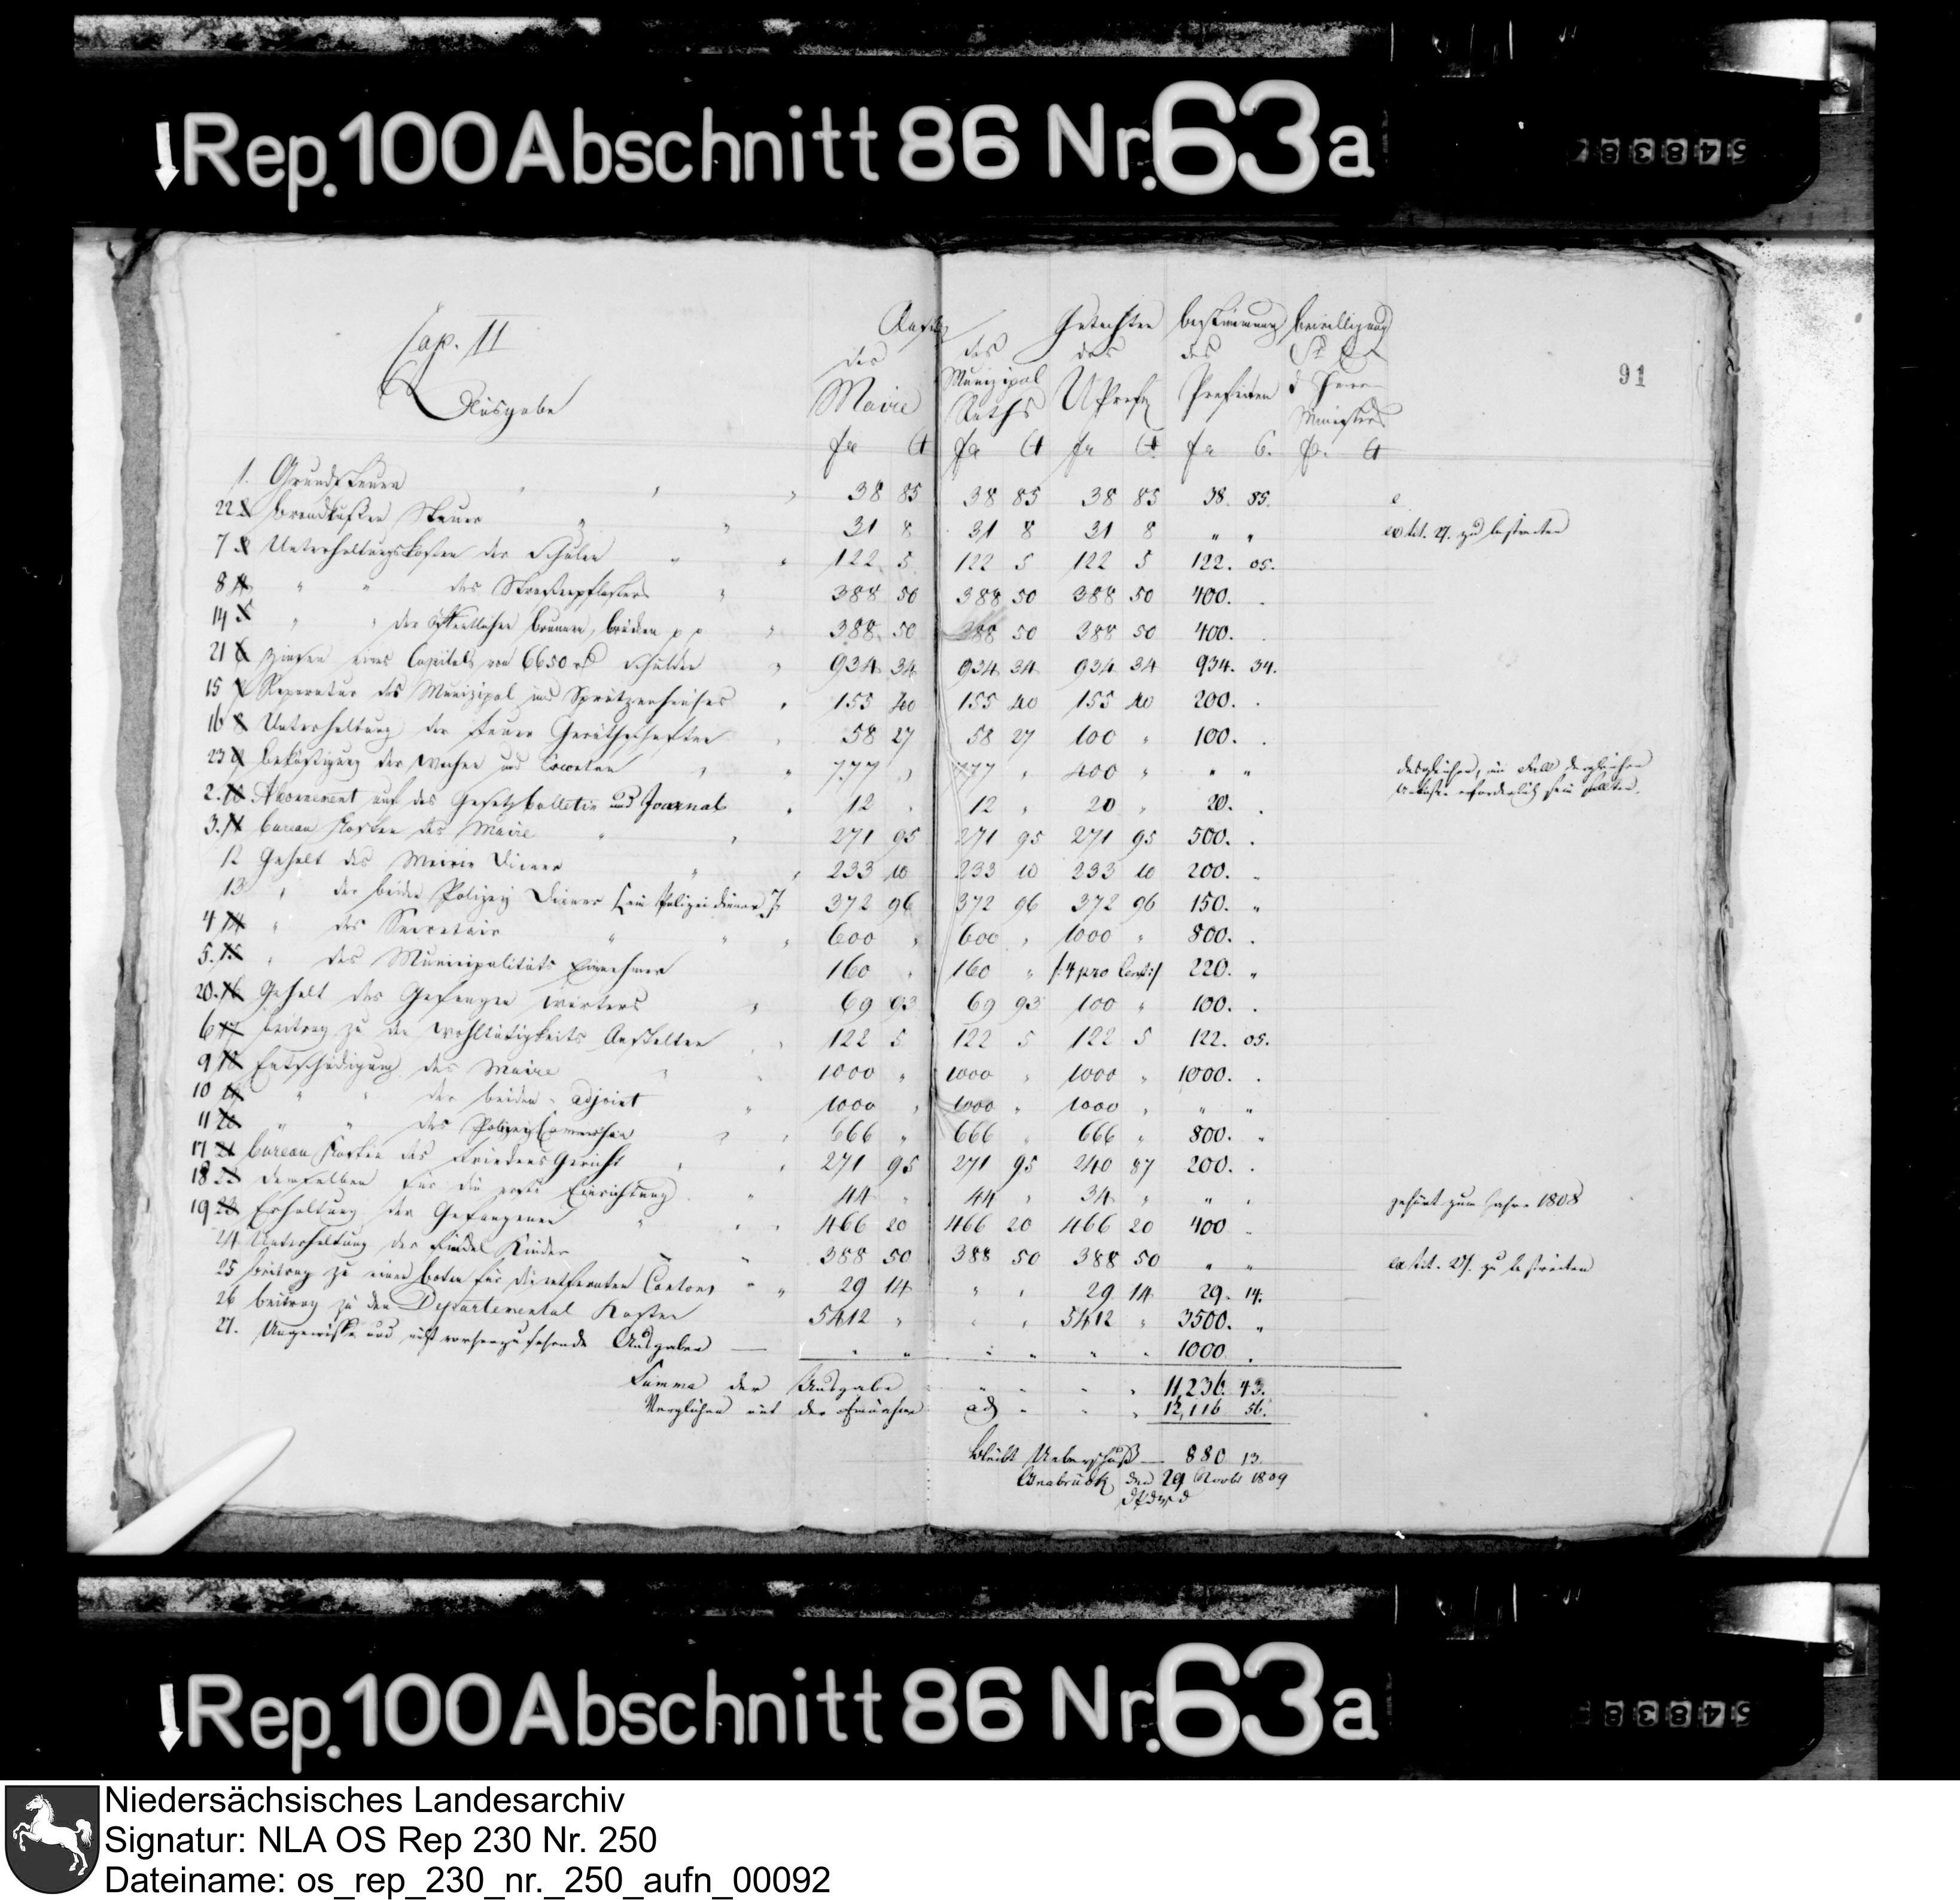 Rep. 100 Abschnitt 86 Nr. 63a
91
Cap. II
Ausgabe
des Maire
des Munizipal Raths
Gutachten des UPrefn
Bestimmung des Prefecten
Bewilligung d Herrn Ministers
fr Ct fr Ct fr Ct fr C. fr. Ct
1. Grundsteuer " " " 38 85 38 85 38 85 38. 85.
22 2 Brandkassen Steuer " " 31 8 31 8 31 8 " " ex tit. 27. zu bestreiten
7 3 Unterhaltungskosten der Schulen " " 122 5 122 5 122 5 122. 05.
8 4 " " des Strassenpflasters " 388 50 388 50 388 50 400. .
14 5 " " der öffentlichen Brunnen, Brücken p p " 388 50 388 50 388 50 400. .
21 6 Zinsen eines Capitals von 6650 rh Schulden " 934 34 934 34 934 34 934. 34.
15 7 Reparatur des Munizipal und Sprützenhauses " 155 40 155 40 155 40 200. .
16 8 Unterhaltung der Feuer Geräthschaften " 58 27 58 27 100 " 100. .
23 9 Beköstigung der Wachen und " " 777 " 777 " 400 " " " desgleichen, im Fall dergleichen erforderlich sein sollten.
2. 10 Abonnement auf das Gesetzbulletin und Journal " 12 " 12 " 20 " 20. .
3. 11 Bureau Kosten des Maire " " 271 95 271 95 271 95 500. .
12 Gehalt des Mairie Diener " " 233 10 233 10 233 10 200. "
13 " der beiden Polizey Diener [ein Polizeidiener] 372 96 372 96 372 96 150. "
4 14 " des Secretair " " " 600 " 600 " 1000 " 800. .
5. 15 " des Municipalitäts Einnehmer 160 " 160 " /: 4 pro Cent :/ 220. "
20. 16 Gehalt des Gefangen Wärters " 69 93 69 93 100 " 100. .
6 17 Beitrag zu den Wohltätigkeits Anstalten " 122 5 122 5 122 5 122. 05.
9 18 Entschädigung des Maire " " 1000 " 1000 " 1000 " 1000. .
10 19 " " der beiden adjoint " 1000 " 1000 " 1000 " " "
11 20 " " des Polizey Commissair " " 666 " 666 " 666 " 800. "
17 21 Bureau Kosten des Friedens Gericht " " 271 95 271 95 240 87 200. .
18 22 demselben für die erste Einrichtung " 44 " 44 " 34 " " " gehört zum Jahre 1808
19 23 Erhaltung der Gefangenen " " 466 20 466 20 466 20 400 .
24 Unterhaltung der Findel Kinder " 388 50 388 50 388 50 " " ex tit. 27. zu bestreiten
25 Beitrag zu einem Boten für die entfernten Cantons " " 29 14 " " 29 14 29. 14.
26 Beitrag zu den Departemental Kosten 5412 " " " 5412 " 3500. "
27. Ungewisse und nicht vorherzusehende Ausgaben — " " " " " " 1000 .
Summa der Ausgabe " " " " 11,236. 43.
Verglichen mit der Einnahme ad " " " 12,116 56.
Bleibt Ueberschuß — 880 13.
Osnabrück den 29 Novbr 1809
Rep. 100 Abschnitt 86 Nr. 63a
Niedersächsisches Landesarchiv
Signatur: NLA OS Rep 230 Nr. 250
Dateiname: os_rep_230_nr._250_aufn_00092